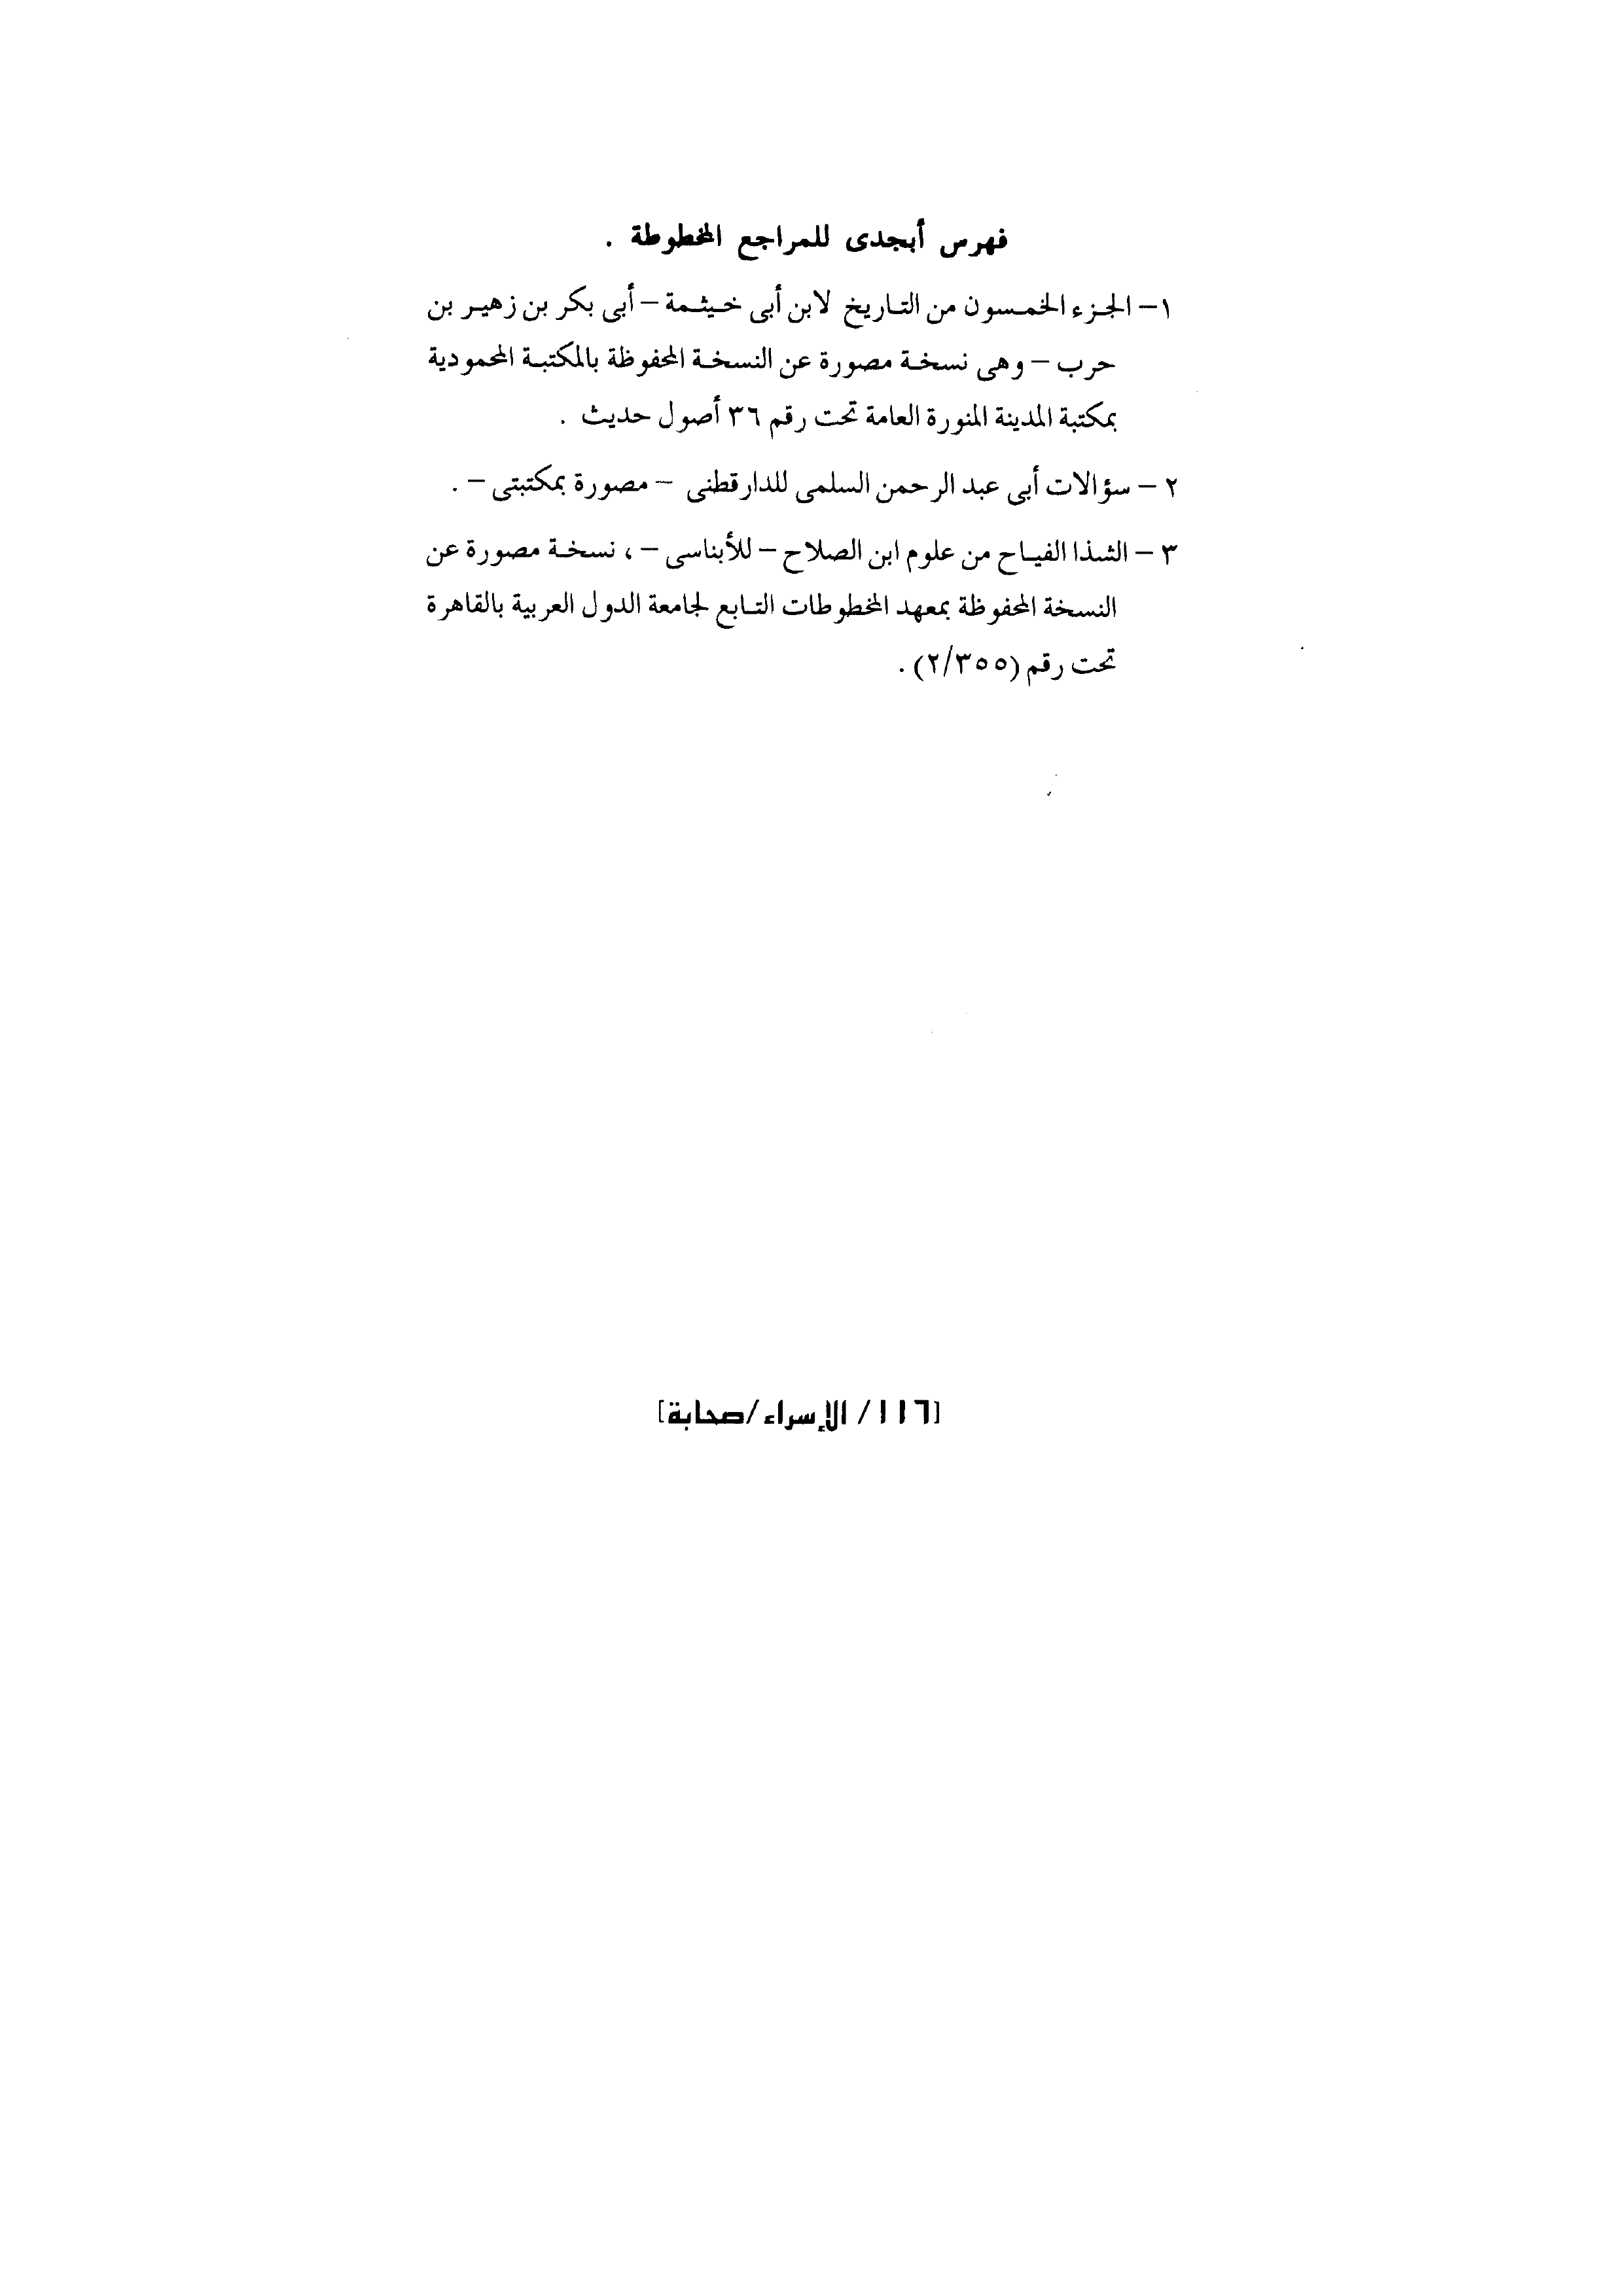 فهرس أبجدى للمراجع المخطوطة .
١- الجزء الخمسون من التاريخ لابن أبى خيثمة - أبى بكر بن زهير بن
حرب - وهى نسخة مصورة عن النسخة المحفوظة بالمكتبة المحمودية
بمكتبة المدينة المنورة العامة تحت رقم ٣٦ أصول حديث .
٢ - سؤالات أبى عبد الرحمن السلمى للدارقطنى - مصورة بمكتبتى - .
٣ - الشذا الفياح من علوم ابن الصلاح - للأبناسى - ، نسخة مصورة عن
النسخة المحفوظة بمعهد المخطوطات التابع لجامعة الدول العربية بالقاهرة
تحت رقم (٢/٣٥٥) .
[١١٦/ الإسراء/صحابة]